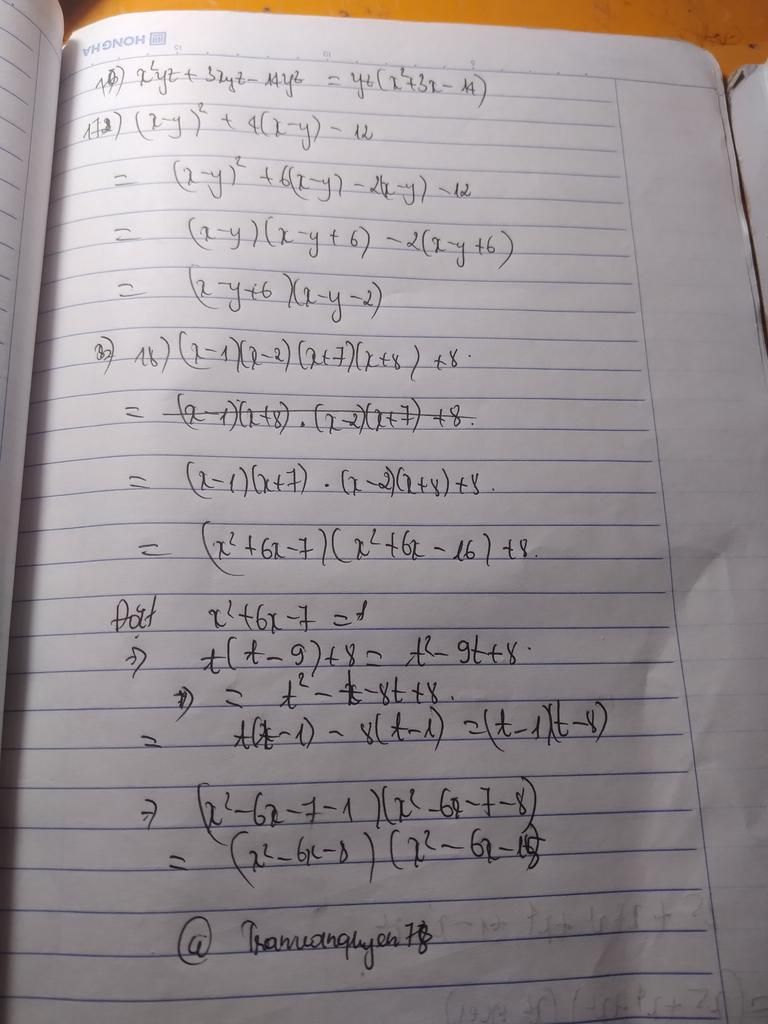 HONGHA
x²yz + 3xyz - 14yz = yz(x²+3x - 14)
172) (x-y)² + 4(x-y) - 12
= (x-y)² + 6(x-y) - 2(x-y) - 12
= (x-y)(x-y+6) - 2(x-y+6)
= (x-y+6)(x-y-2)
18) (x-1)(x-2)(x+7)(x+8) +8.
= (x-1)(x+8) . (x-2)(x+7) +8.
= (x-1)(x+7) . (x-2)(x+8)+8.
= (x²+6x-7)(x²+6x-16) +8.
Đặt x²+6x-7 = t
=> t(t-9)+8 = t²-9t+8.
= t²-t-8t+8.
= t(t-1) - 8(t-1) = (t-1)(t-8)
=> (x²-6x-7-1)(x²-6x-7-8)
= (x²-6x-8) (x²-6x-15)